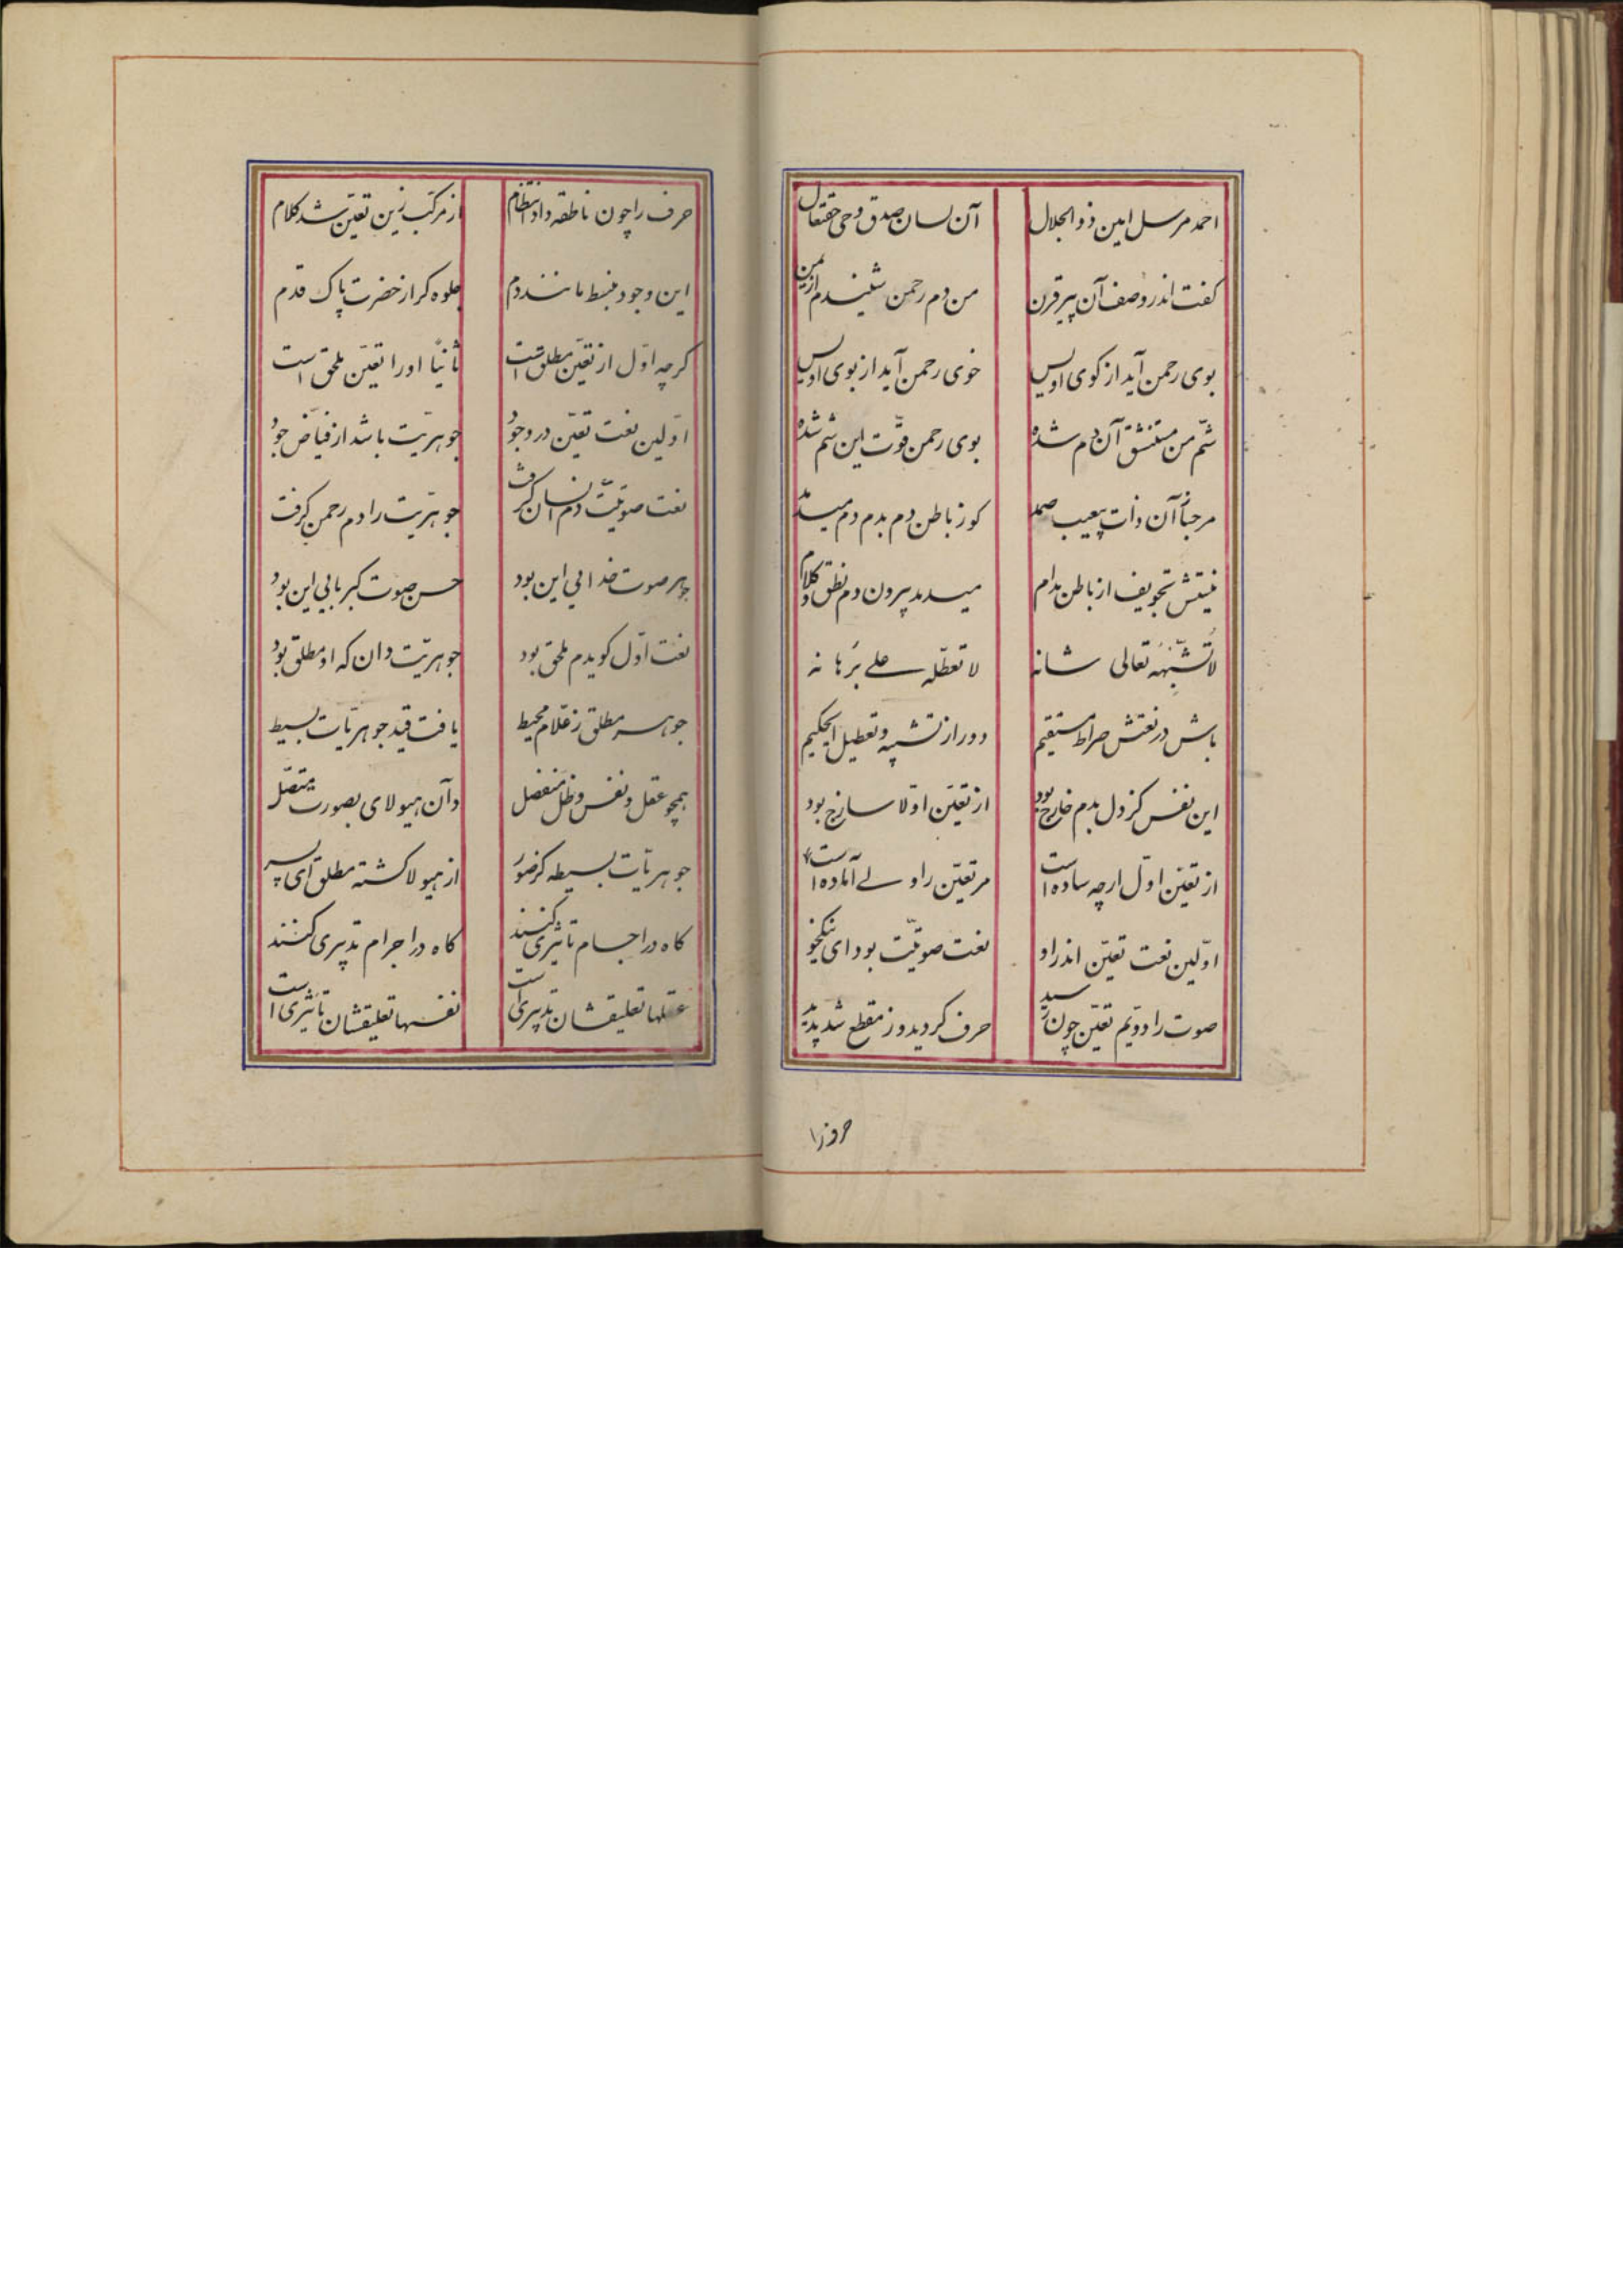 احمد مرسل امین ذو الجلال آن لسان صدق وحی حقتعال
کفت اندر وصف آن پیر قرن من دم رحمن شنیدم از یمن
بوی رحمن آید از کوی اویس خوی رحمن آید از بوی اویس
شم من مستنشق آن دم شده بوی رحمن قوّت این شم شده
مرحباً آن ذات بیعیب صمد کوز باطن دم بدم دم میدمد
نیستش تجویف از باطن مدام میدمد بیرون دم نطق و کلام
لا تُشبّهَهُ تعالی شانه لا تعطّله علی بُرهانه
باش در نعتش صراط مستقیم دور از تشبیه و تعطیل ایحکیم
این نفس کز دل بدم خارج بود از تعیّن اوّلا سازج بود
از تعیّن اوّل ارچه ساده است مر تعیّن را ولی آماده است
اوّلین نعت تعیّن اندر او نعت صوتیّت بود ای نیکخو
صوت را دویّم تعیّن چون رسید حرف کردید و ز مقطع شد پدید
حرف را چون ناطقه داد انتظام از مرکّب زین تعیّن شد کلام
این وجود منبسط مانند دم جلوه کر از حضرت پاک قدم
کرچه اوّل از تعیّن مطلق است ثانیاً اورا تعیّن ملحق است
اوّلین نعت تعیّن در وجود جوهریّت باشد از فیّاض جود
نعت صوتیّت دم انسان کرفت جوهریّت را دم رحمن کرفت
جوهر صوت خدائی این بود حسن صوت کبریائی این بود
نعت اوّل کو بدم ملحق بود جوهریّت دان که او مطلق بود
جوهر مطلق ز علّام محیط یافت قید جوهریّات بسیط
همچو عقل و نفس و ظلّ منفصل وآن هیولای بصورت متّصل
جوهریّات بسیطه کز صور از هیولا کشته مطلق ای پسر
کاه در اجسام تاثیری کنند کاه در اجرام تدبیری کنند
عقلها تعلیقشان تدبیری است نفسها تعلیقشان تاثیری است